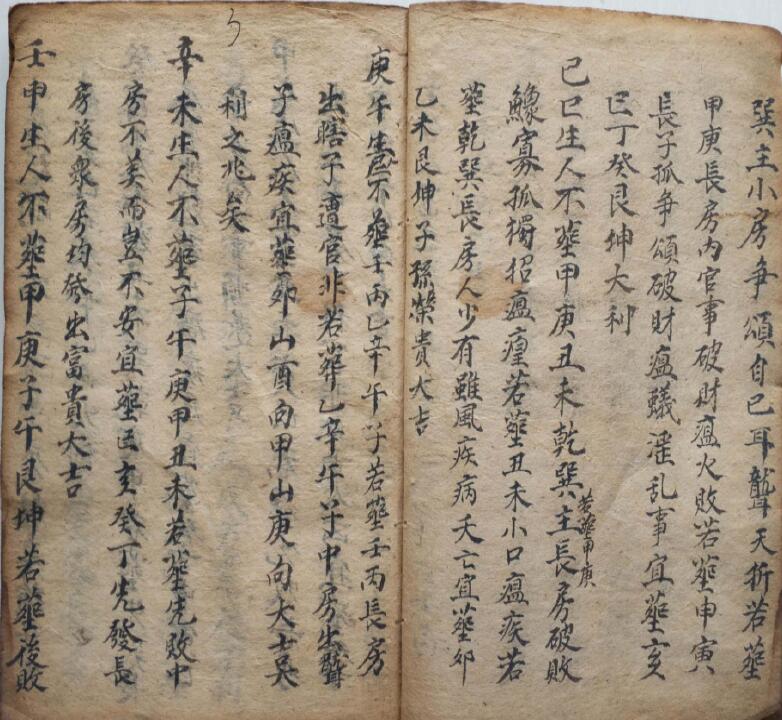 巽主小房争頌自己耳聾夭折若塟
甲庚長房内官事破財瘟火敗若塟申寅
長子孤争頌破財瘟蟻淫乱事宜塟亥
巳丁癸艮坤大利
己巳生人不塟甲庚丑未乾巽主長房破敗
若塟甲庚
鰥寡孤獨招瘟瘟若塟丑未小口瘟疾若
塟乾巽長房人少有雖風疾病夭亡宜塟夘
乙未艮坤子孫榮貴大吉
庚午生不塟壬丙乙辛午子若塟壬丙長房
出瞎子遭官非若塟乙辛午子中房出聾
子瘟疾宜塟夘山酉向甲山庚向大吉
利之兆矣
辛未生人不塟子午庚甲丑未若塟先敗中
房不美而豈不安宜塟巳亥癸丁先發長
房後衆房均發出富貴大吉
壬申生人不塟甲庚子午艮坤若塟後敗